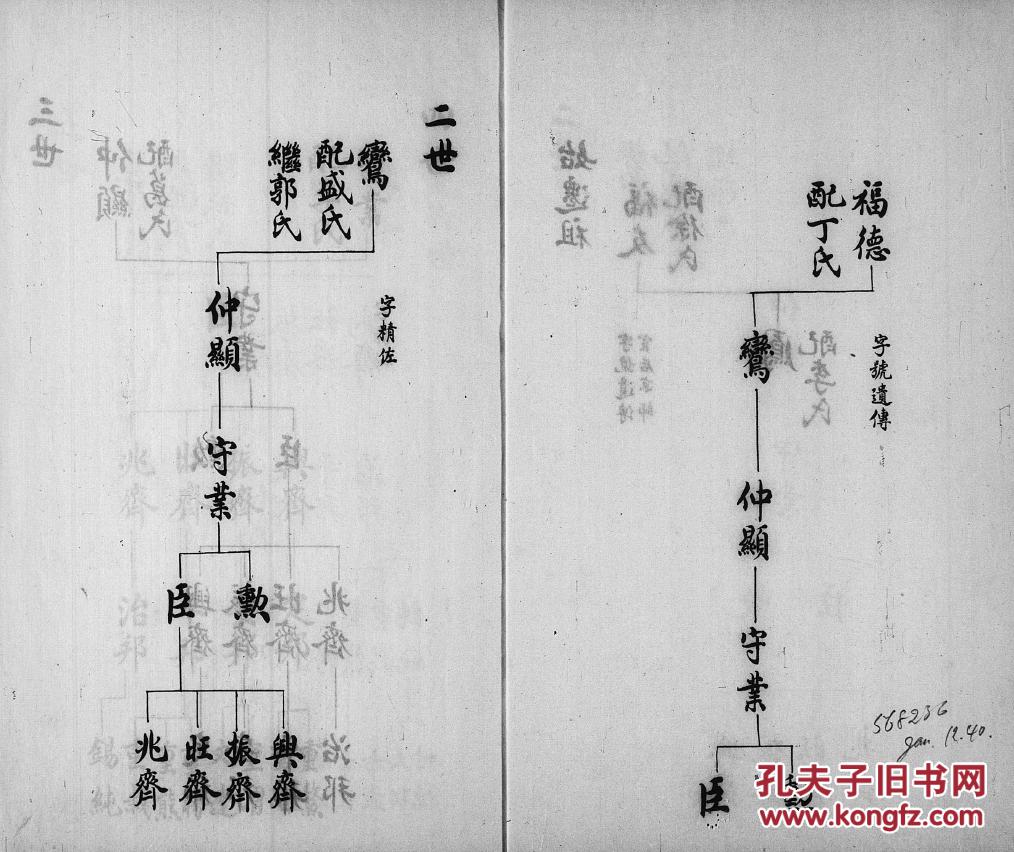 福德
配丁氏
字號遺傳
鸞
仲顯
守業
勲
臣
568236
Jan. 12. 40.
孔夫子旧书网
www.kongfz.com
二世
鸞
配盛氏
繼郭氏
字精佐
仲顯
守業
勲
臣
興齊
振齊
旺齊
兆齊